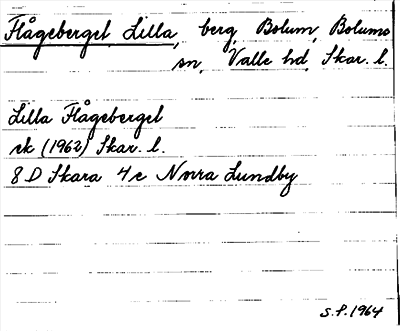 Flågeberget, Lilla, berg, Bolum, Bolums
sn, Valle hd, Skar. l.
Lilla Flågeberget
rk (1962) Skar. l.
8 D Skara 4c Norra Lundby
S.P. 1964